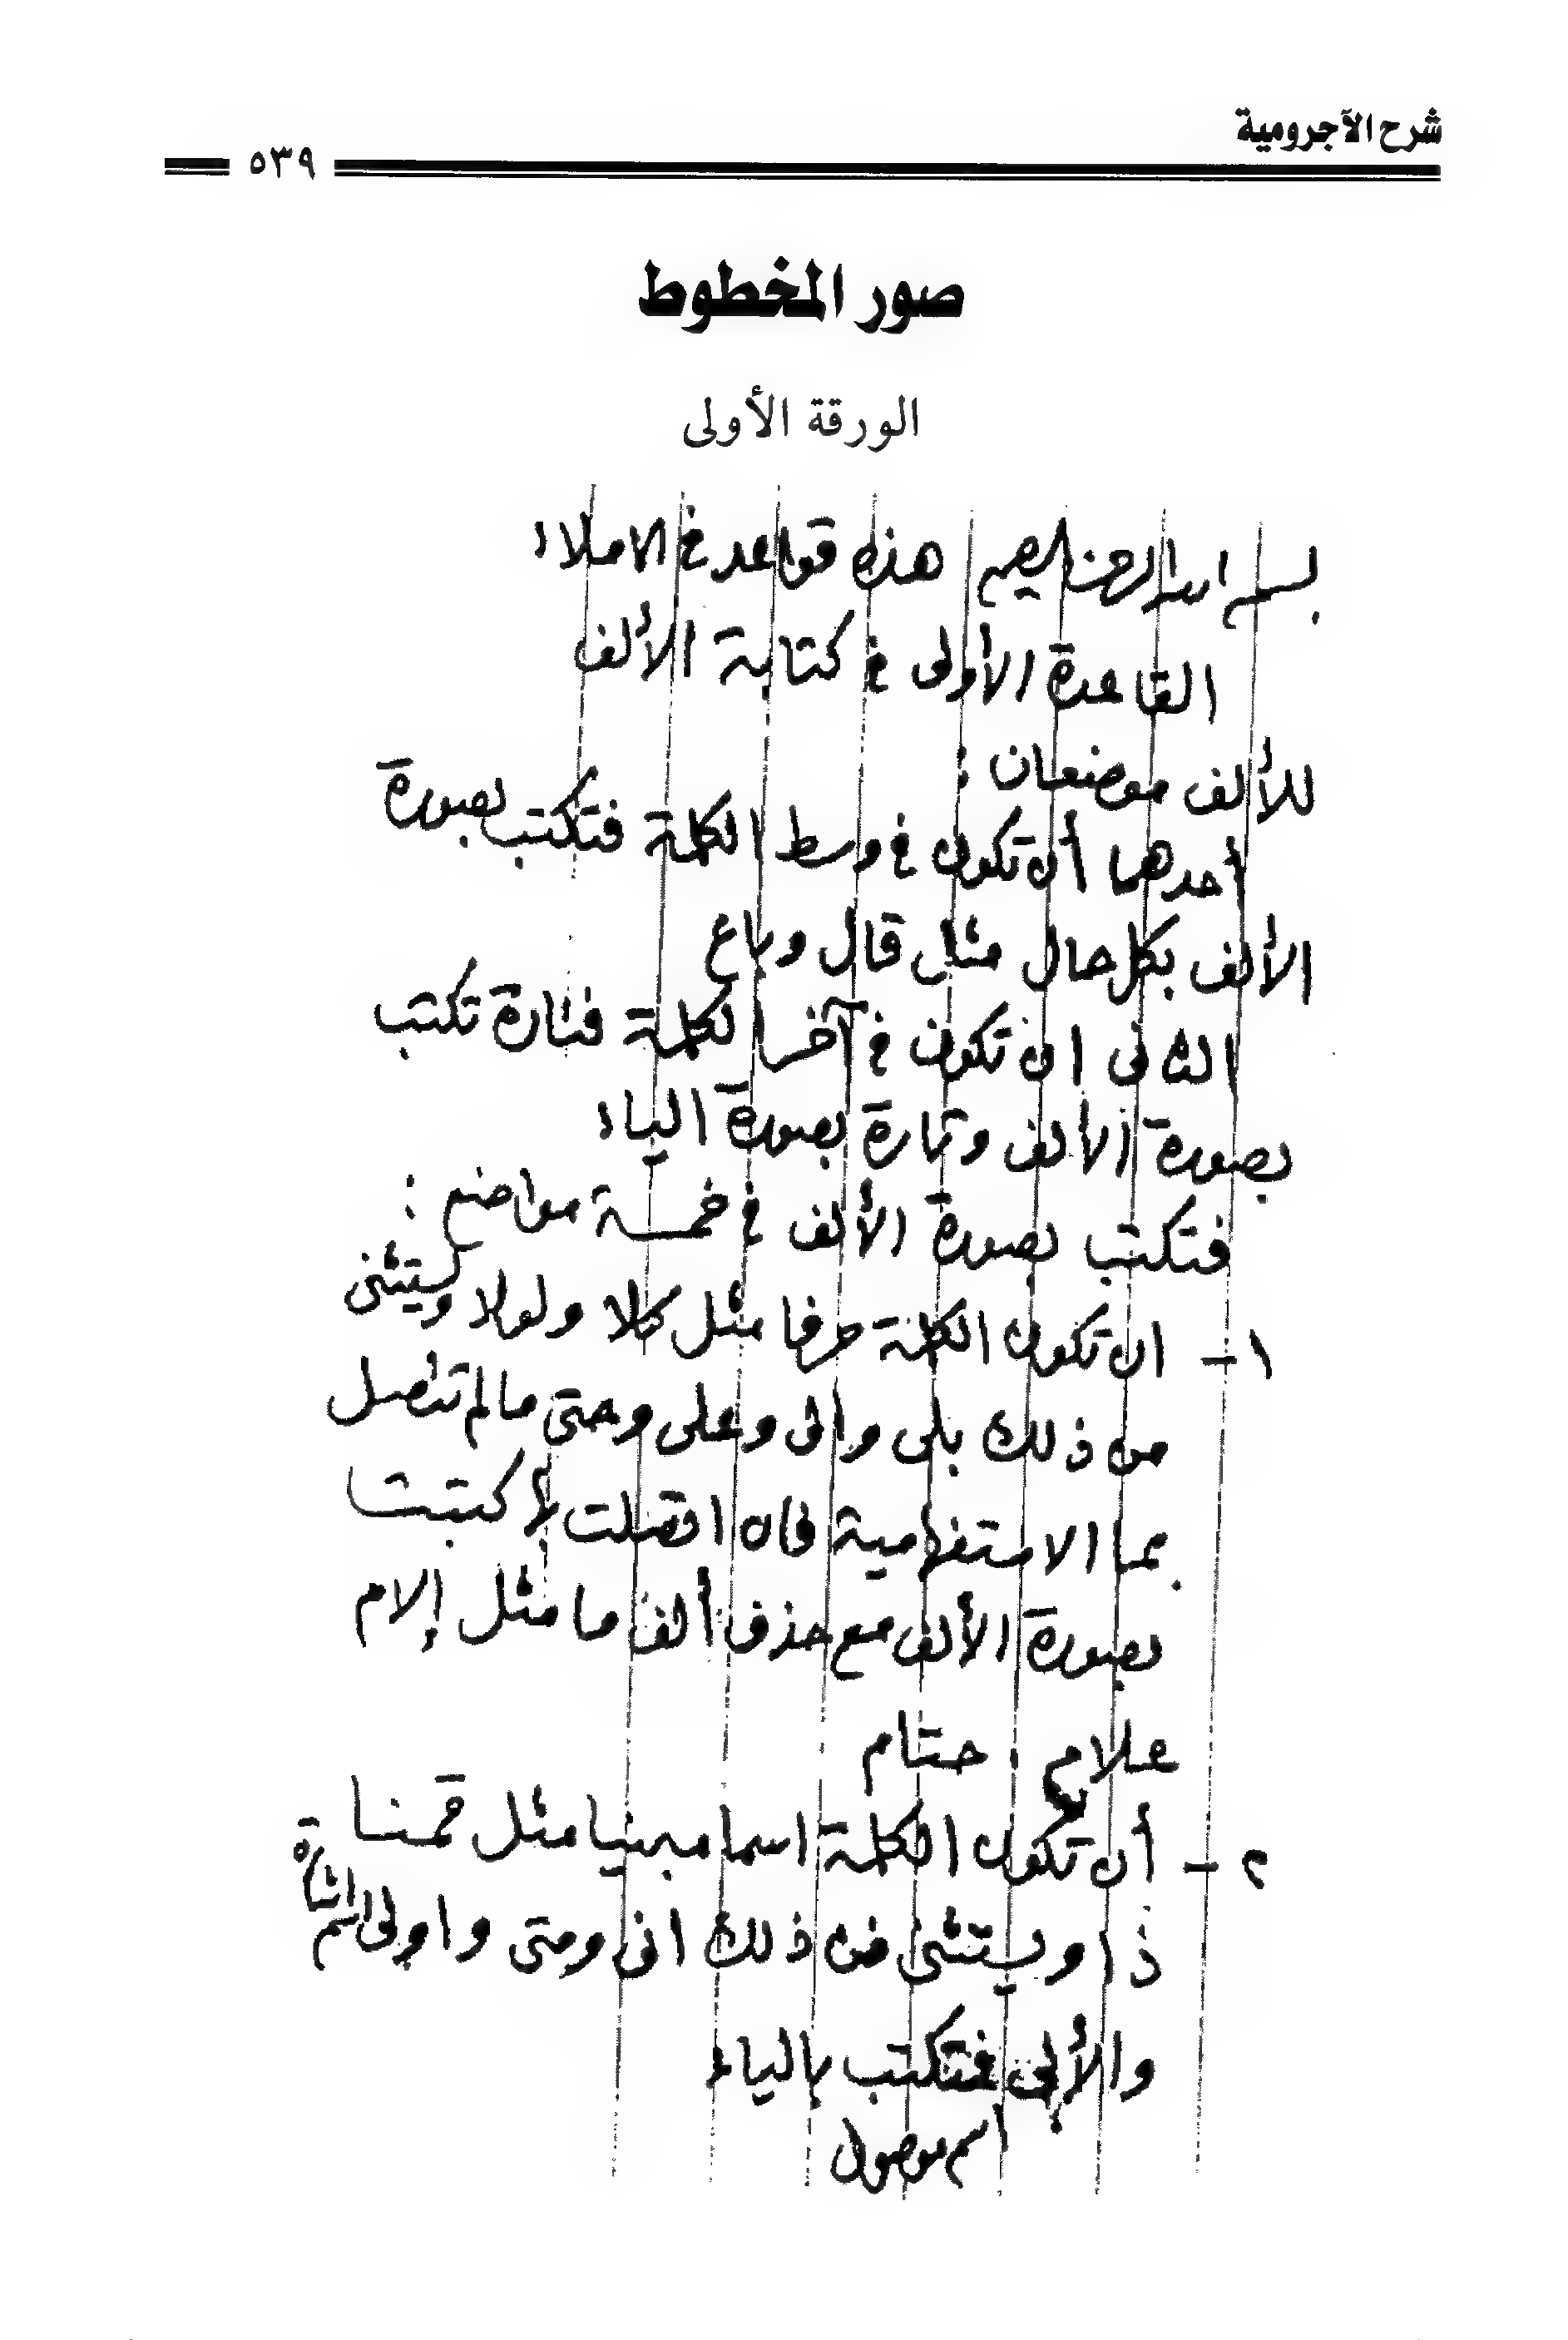 شرح الآجرومية
٥٣٩
صور المخطوط
الورقة الأولى
بسم الله الرحمن الرحيم هذه قواعد في الاملاء
القاعدة الأولى في كتابة الألف
للألف موضعان :
أحدهما أن تكون في وسط الكلمة فتكتب بصورة
الألف بكل حال مثل قال وباع
الثاني ان تكون في آخر الكلمة فتارة تكتب
بصورة الألف وتارة بصورة الياء
فتكتب بصورة الألف في خمسة مواضع :
١ - ان تكون الكلمة حرفا مثل كلا ولولا ويستثنى
من ذلك بلى والى وعلى وحتى ما لم تتصل
بما الاستفهامية فان اتصلت بها كتبت
بصورة الألف مع حذف ألف ما مثل إلام
علام ، حتام
٢ - أن تكون الكلمة اسما مبنيا مثل قمنا
ذا ويستثنى من ذلك انى ومتى واولى اسم اشارة
والألى فتكتب بالياء
اسم موصول